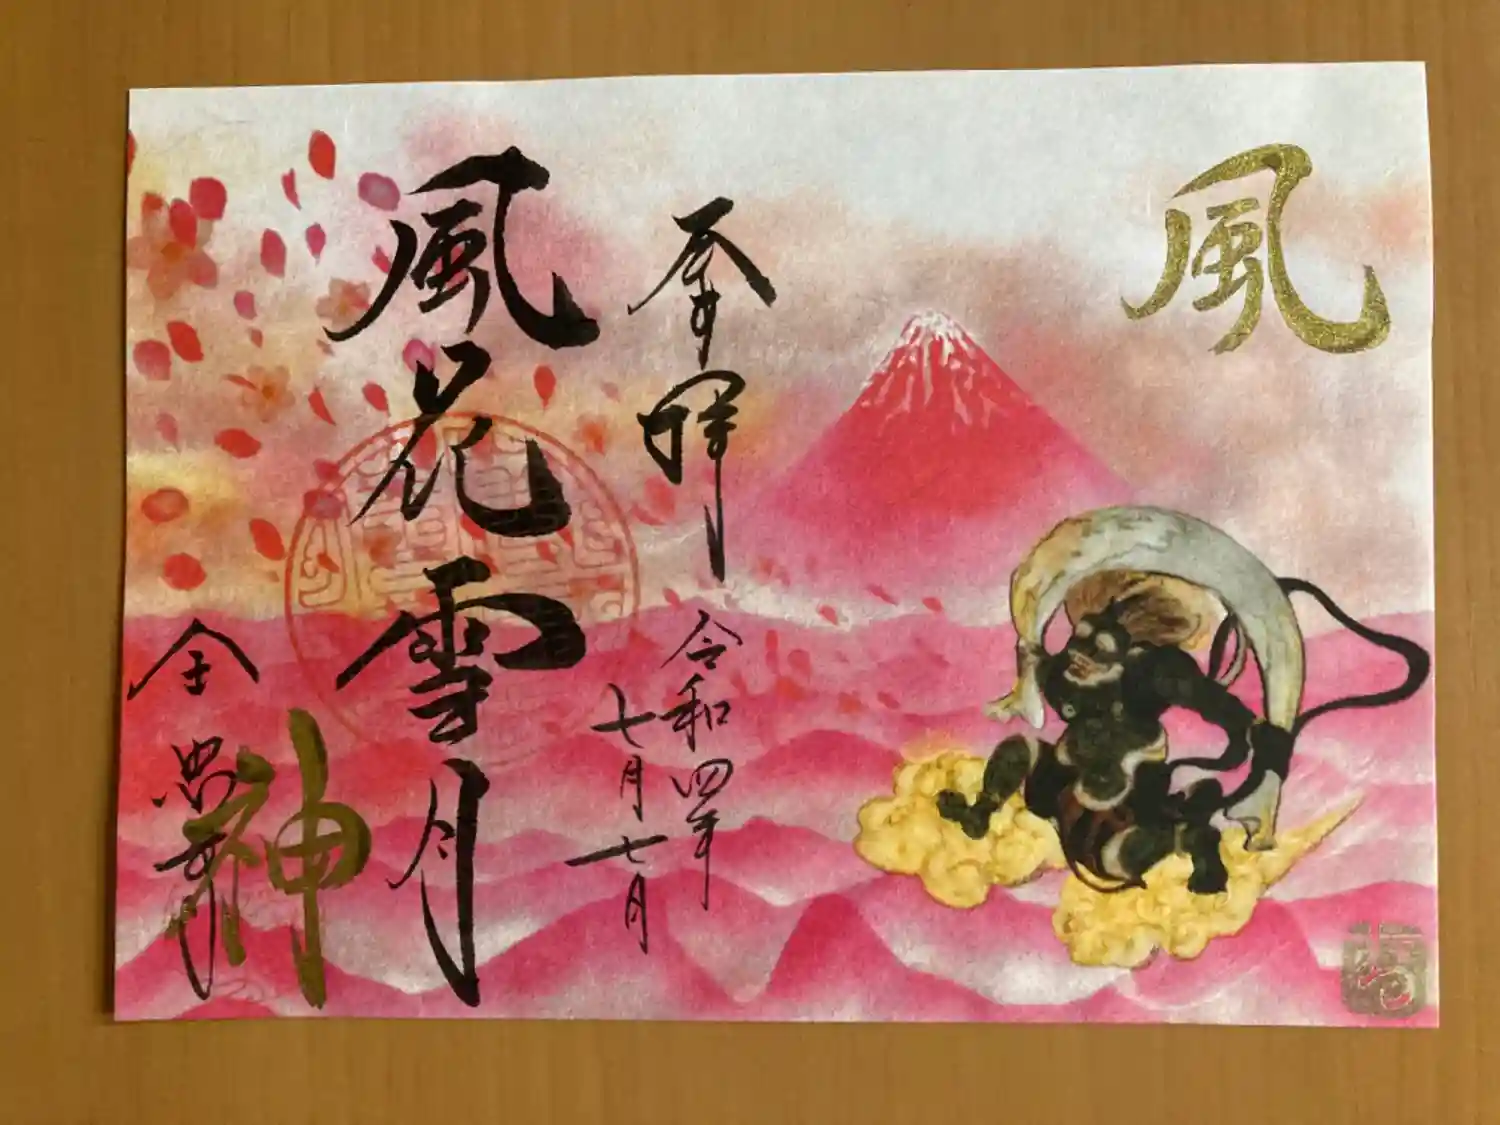 風
奉拝
令和四年
七月七日
風花雪月
神